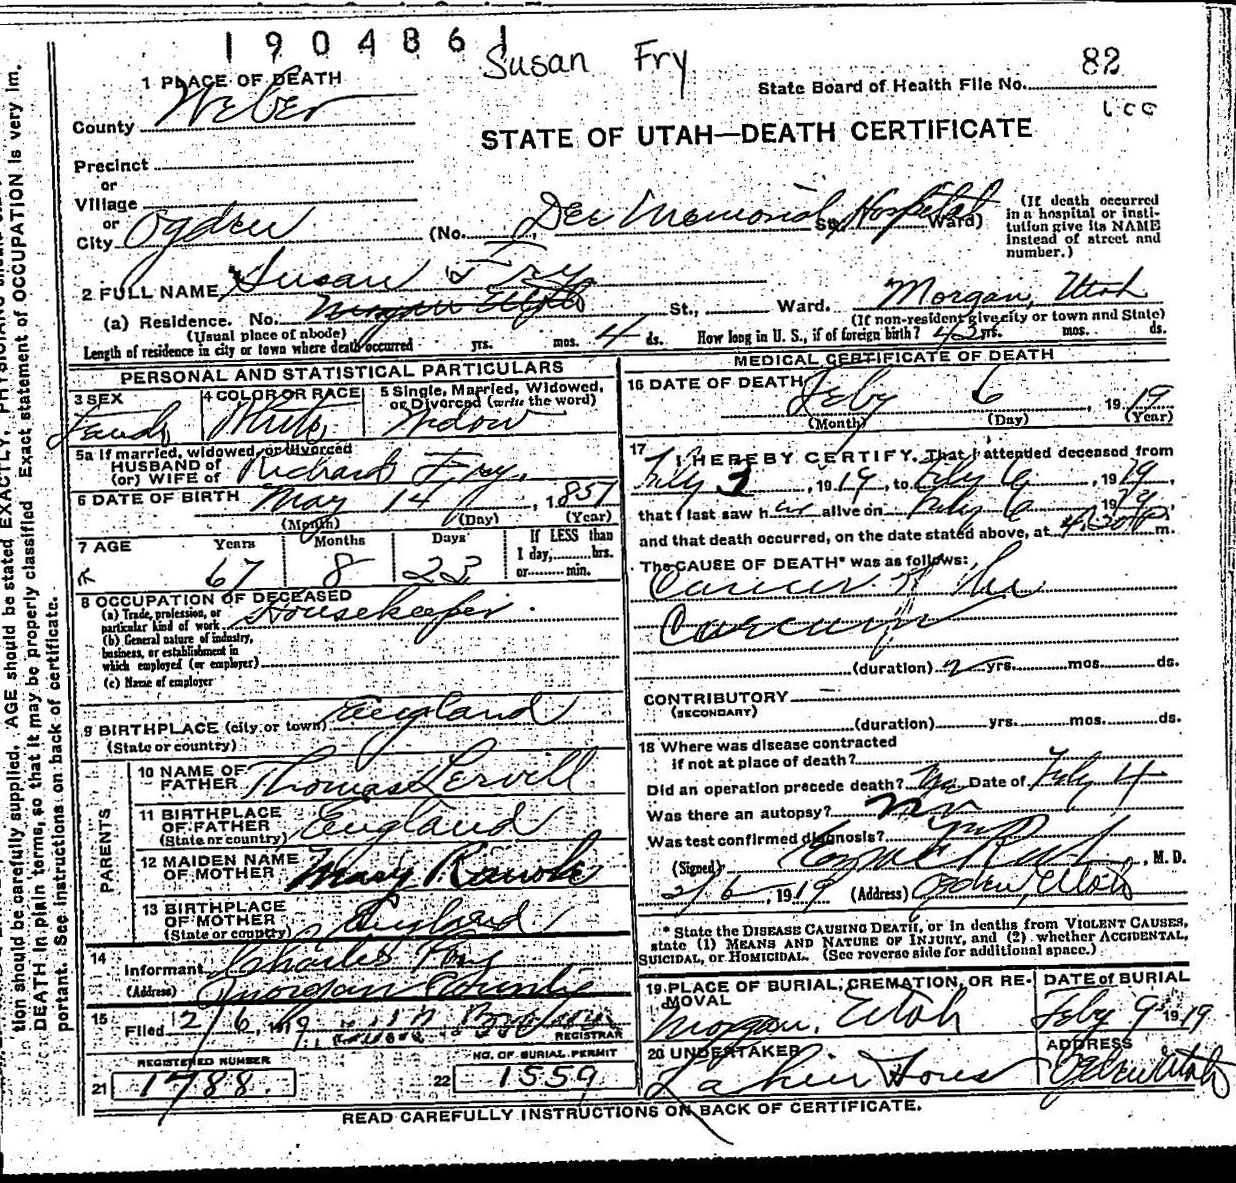 1904861
Susan Fry
82
1 PLACE OF DEATH
State Board of Health File No.
County Weber
STATE OF UTAH—DEATH CERTIFICATE
Precinct
or
Village
or
City Ogden (No. Dee Memorial Hospital St., Ward)
(If death occurred in a hospital or insti-
tution give its NAME
instead of street and
number.)
2 FULL NAME Susan Fry
(a) Residence. No. St., Ward. Morgan, Utah
(Usual place of abode) (If non-resident give city or town and State)
Length of residence in city or town where death occurred yrs. mos. 4 ds. How long in U. S., if of foreign birth? 43 yrs. mos. ds.
PERSONAL AND STATISTICAL PARTICULARS
3 SEX 4 COLOR OR RACE 5 Single, Married, Widowed,
or Divorced (write the word)
White Widow
5a If married, widowed, or divorced
HUSBAND of
(or) WIFE of Richard Fry.
6 DATE OF BIRTH May 14, 1851
(Month) (Day) (Year)
7 AGE Years Months Days If LESS than
1 day,......hrs.
or......min.
67 8 23
8 OCCUPATION OF DECEASED
(a) Trade, profession, or
particular kind of work Housekeeper.
(b) General nature of industry,
business, or establishment in
which employed (or employer)
(c) Name of employer
9 BIRTHPLACE (city or town) England
(State or country)
PARENTS
10 NAME OF
FATHER Thomas
11 BIRTHPLACE
OF FATHER England
(State or country)
12 MAIDEN NAME
OF MOTHER Mary
13 BIRTHPLACE
OF MOTHER England
(State or country)
14 Informant Charles Fry
(Address) Morgan County
15 Filed 2/6, 1919
REGISTRAR
REGISTERED NUMBER NO. OF BURIAL PERMIT
21 1788. 22 1559
MEDICAL CERTIFICATE OF DEATH
16 DATE OF DEATH Feby 6, 1919
(Month) (Day) (Year)
17 I HEREBY CERTIFY, That I attended deceased from
Feby 3, 1919, to Feby 6, 1919,
that I last saw her alive on Feby 6 1919,
and that death occurred, on the date stated above, at 4.30 P m.
The CAUSE OF DEATH* was as follows:
Cancer of the
(duration) 2 yrs. mos. ds.
CONTRIBUTORY
(SECONDARY)
(duration) yrs. mos. ds.
18 Where was disease contracted
if not at place of death?
Did an operation precede death? Yes Date of Feby 4
Was there an autopsy? no
Was test confirmed diagnosis?
(Signed) , M. D.
2/6, 1919 (Address) Ogden, Utah
* State the DISEASE CAUSING DEATH, or in deaths from VIOLENT CAUSES,
state (1) MEANS AND NATURE OF INJURY, and (2) whether ACCIDENTAL,
SUICIDAL, or HOMICIDAL. (See reverse side for additional space.)
19 PLACE OF BURIAL, CREMATION, OR RE-
MOVAL Morgan, Utah
DATE OF BURIAL
Feby 9 1919
20 UNDERTAKER Larkin Sons
ADDRESS Ogden Utah
READ CAREFULLY INSTRUCTIONS ON BACK OF CERTIFICATE.
tion should be carefully supplied. AGE should be stated EXACTLY.
DEATH in plain terms, so that it may be properly classified. Exact statement of OCCUPATION is very im-
portant. See instructions on back of certificate.